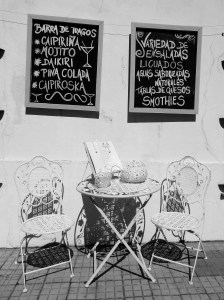 BARRA DE TRAGOS
* CAIPIRIÑA
* MOJITO
* DAIKIRI
* PIÑA COLADA
* CAIPIROSKA
VARIEDAD DE
ENSALADAS
LICUADOS
AGUAS SABORIZADAS
NATURALES
TABLAS DE QUESOS
SMOTHIES